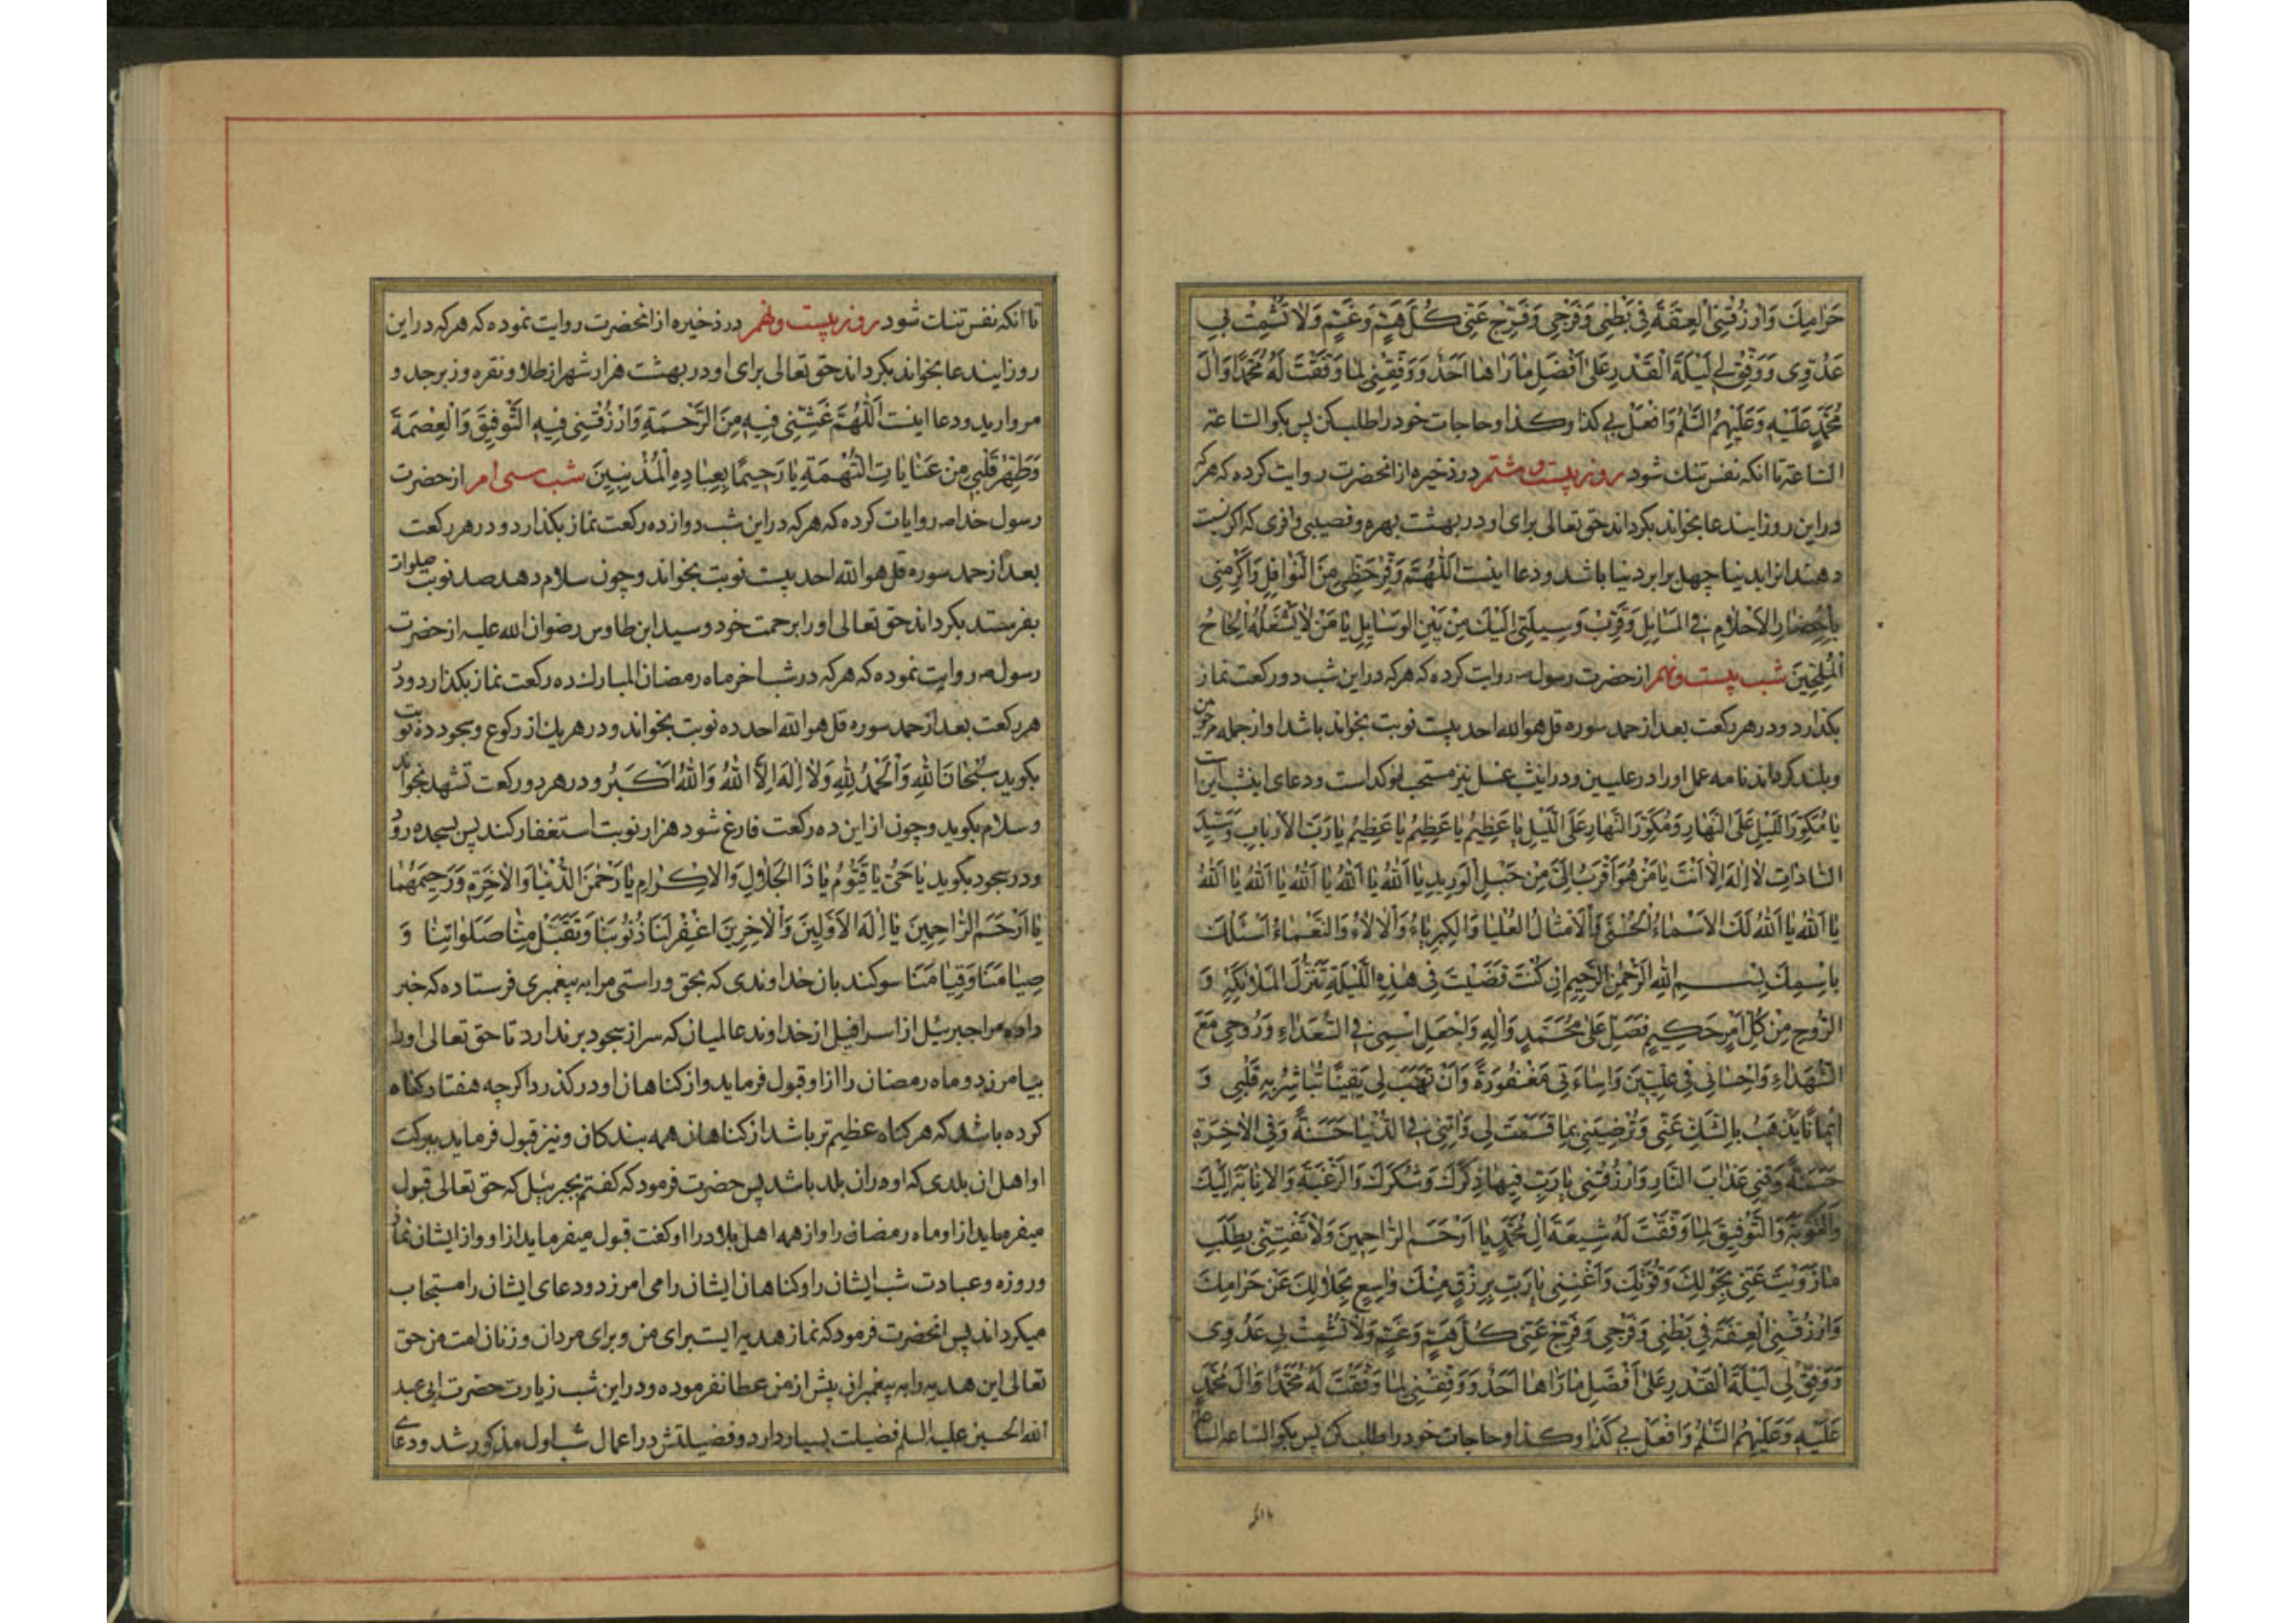 حَرَامِكَ وَارْزُقْنِی الْعِفَّةَ فِی بَطْنِی وَفَرْجِی وَفَرِّجْ عَنِّی كُلَّ هَمٍّ وَغَمٍّ وَلَا تُشْمِتْ بِی
عَدُوِّی وَوَفِّقْ لِی لَیْلَةَ الْقَدْرِ عَلٰی اَفْضَلِ مَا رَاٰهَا اَحَدٌ وَوَفِّقْنِی لِمَا وَفَّقْتَ لَهُ مُحَمَّدًا وَاٰلَ
مُحَمَّدٍ عَلَیْهِ وَعَلَیْهِمُ السَّلٰمُ وَافْعَلْ بِی كَذَا وَكَذَا وحاجات خود را طلب كن پس بكو الساعة
الساعة تا انكه نفس تنك شود روز بیست و هشتم در ذخیره از انحضرت روایت كرده كه هر كه
در این روز ایندعا بخواند بكرداند حق تعالی برای او در بهشت بهره و نصیبی وافری كه اكر نسبت
دهند انرا بدنیا چهل برابر دنیا باشد و دعا اینست اَللّٰهُمَّ وَفِّرْ حَظِّی مِنَ النَّوَافِلِ وَاَكْرِمْنِی
بِاِحْضَارِ الْاَحْلَامِ فِی الْمَسَایِلِ وَقَرِّبْ وَسِیلَتِی اِلَیْكَ مِنْ بَیْنِ الْوَسَایِلِ یَا مَنْ لَا یَشْغَلُهُ اِلْحَاحُ
الْمُلِحِّینَ شب بیست و نهم از حضرت رسول ص روایت كرده كه هر كه در این شب دو ركعت نماز
بكذارد و در هر ركعت بعد از حمد سوره قل هو الله احد بیست نوبت بخواند باشد او از جمله مرحومین
و بلند كرداند نامه عمل او را در علیین و در اینشب غسل نیز مستحب مؤكد است و دعای اینشب اینست
یَا مُكَوِّرَ اللَّیْلِ عَلَی النَّهَارِ وَمُكَوِّرَ النَّهَارِ عَلَی اللَّیْلِ یَا عَظِیمُ یَا عَظِیمُ یَا عَظِیمُ یَا رَبَّ الْاَرْبَابِ وَسَیِّدَ
السَّادَاتِ لَا اِلٰهَ اِلَّا اَنْتَ یَا مَنْ هُوَ اَقْرَبُ اِلَیَّ مِنْ حَبْلِ الْوَرِیدِ یَا اَللّٰهُ یَا اَللّٰهُ یَا اَللّٰهُ یَا اَللّٰهُ یَا اَللّٰهُ
یَا اَللّٰهُ یَا اَللّٰهُ لَكَ الْاَسْمَاءُ الْحُسْنٰی وَالْاَمْثَالُ الْعُلْیَا وَالْكِبْرِیَاءُ وَالْاٰلَاءُ وَالنَّعْمَاءُ اَسْئَلُكَ
بِاسْمِكَ بِسْمِ اللّٰهِ الرَّحْمٰنِ الرَّحِیمِ اِنْ كُنْتَ قَضَیْتَ فِی هٰذِهِ اللَّیْلَةِ تَنَزُّلَ الْمَلَائِكَةِ وَ
الرُّوحِ مِنْ كُلِّ اَمْرٍ حَكِیمٍ فَصَلِّ عَلٰی مُحَمَّدٍ وَاٰلِهِ وَاجْعَلِ اسْمِی فِی السُّعَدَاءِ وَرُوحِی مَعَ
الشُّهَدَاءِ وَاِحْسَانِی فِی عِلِّیِّینَ وَاِسَاءَتِی مَغْفُورَةً وَاَنْ تَهَبَ لِی یَقِینًا تُبَاشِرُ بِهِ قَلْبِی وَ
اِیمَانًا یَذْهَبُ بِالشَّكِّ عَنِّی وَتُرْضِیَنِی بِمَا قَسَمْتَ لِی وَاٰتِنِی فِی الدُّنْیَا حَسَنَةً وَفِی الْاٰخِرَةِ
حَسَنَةً وَقِنِی عَذَابَ النَّارِ وَارْزُقْنِی یَا رَبِّ فِیهَا ذِكْرَكَ وَشُكْرَكَ وَالرَّغْبَةَ وَالْاِنَابَةَ اِلَیْكَ
وَالتَّوْبَةَ وَالتَّوْفِیقَ لِمَا وَفَّقْتَ لَهُ شِیعَةَ اٰلِ مُحَمَّدٍ یَا اَرْحَمَ الرَّاحِمِینَ وَلَا تَفْتِنِّی بِطَلَبِ
مَا زَوَیْتَ عَنِّی بِحَوْلِكَ وَقُوَّتِكَ وَاَغْنِنِی یَا رَبِّ بِرِزْقٍ مِنْكَ وَاسِعٍ بِحَلَالِكَ عَنْ حَرَامِكَ
وَارْزُقْنِی الْعِفَّةَ فِی بَطْنِی وَفَرْجِی وَفَرِّجْ عَنِّی كُلَّ هَمٍّ وَغَمٍّ وَلَا تُشْمِتْ بِی عَدُوِّی
وَوَفِّقْ لِی لَیْلَةَ الْقَدْرِ عَلٰی اَفْضَلِ مَا رَاٰهَا اَحَدٌ وَوَفِّقْنِی لِمَا وَفَّقْتَ لَهُ مُحَمَّدًا وَاٰلَ مُحَمَّدٍ
عَلَیْهِ وَعَلَیْهِمُ السَّلٰمُ وَافْعَلْ بِی كَذَا وَكَذَا وحاجات خود را طلب كن پس بكو الساعة الساعة
تا انكه
تا انكه نفس تنك شود روز بیست و نهم در ذخیره از انحضرت روایت نموده كه هر كه در این
روز ایندعا بخواند بكرداند حق تعالی برای او در بهشت هزار شهر از طلا و نقره و زبرجد و
مروارید و دعا اینست اَللّٰهُمَّ غَشِّنِی فِیهِ مِنَ الرَّحْمَةِ وَارْزُقْنِی فِیهِ التَّوْفِیقَ وَالْعِصْمَةَ
وَطَهِّرْ قَلْبِی مِنْ عَنَایَاتِ التُّهْمَةِ یَا رَحِیمًا بِعِبَادِهِ الْمُذْنِبِینَ شب سی ام از حضرت
رسول خدا ص روایات كرده كه هر كه در این شب دوازده ركعت نماز بكذارد و در هر ركعت
بعد از حمد سوره قل هو الله احد بیست نوبت بخواند و چون سلام دهد صد نوبت صلوات
بفرستد بكرداند حق تعالی او را برحمت خود و سید ابن طاوس رضوان الله علیه از حضرت
رسول ص روایت نموده كه هر كه در شب اخر ماه رمضان المبارك ده ركعت نماز بكذارد و در
هر ركعت بعد از حمد سوره قل هو الله احد ده نوبت بخواند و در هر یك از ركوع و سجود ده نوبت
بكوید سُبْحَانَ اللّٰهِ وَالْحَمْدُ لِلّٰهِ وَلَا اِلٰهَ اِلَّا اللّٰهُ وَاللّٰهُ اَكْبَرُ و در هر دو ركعت تشهد بخواند
و سلام بكوید و چون از این ده ركعت فارغ شود هزار نوبت استغفار كند پس بسجده رود
و در سجود بكوید یَا حَیُّ یَا قَیُّومُ یَا ذَا الْجَلَالِ وَالْاِكْرَامِ یَا رَحْمٰنَ الدُّنْیَا وَالْاٰخِرَةِ وَرَحِیمَهُمَا
یَا اَرْحَمَ الرَّاحِمِینَ یَا اِلٰهَ الْاَوَّلِینَ وَالْاٰخِرِینَ اغْفِرْ لَنَا ذُنُوبَنَا وَتَقَبَّلْ مِنَّا صَلَوَاتِنَا وَ
صِیَامَنَا وَقِیَامَنَا سوكند بان خداوندی كه بحق و راستی مرا به پیغمبری فرستاده كه خبر
داده مرا جبرییل از اسرافیل از خداوند عالمیان كه سر از سجود برندارد تا حق تعالی او را
بیامرزد و ماه رمضان را از او قبول فرماید و از كناهان او در كذرد اكر چه هفتاد كناه
كرده باشد كه هر كناه عظیم تر باشد از كناهان همه بندكان و نیز قبول فرماید ببركت
او اهل ان بلدی كه او در ان بلد باشد پس حضرت فرمود كه كفتم بجبرییل كه حق تعالی قبول
میفرماید از او ماه رمضان را و از همه اهل بلاد را او كفت قبول میفرماید از او و از ایشان نماز
و روزه و عبادت شب ایشان را و كناهان ایشان را می امرزد و دعای ایشان را مستجاب
میكرداند پس انحضرت فرمود كه نماز هدیه ایست برای من و برای مردان و زنان امت من حق
تعالی این هدیه را به پیغمبران پیش از من عطا نفرموده و در این شب زیارت حضرت ابی عبد
الله الحسین علیه السلم فضیلت بسیار دارد و فضیلتش در اعمال شب اول مذكور شد و دعای